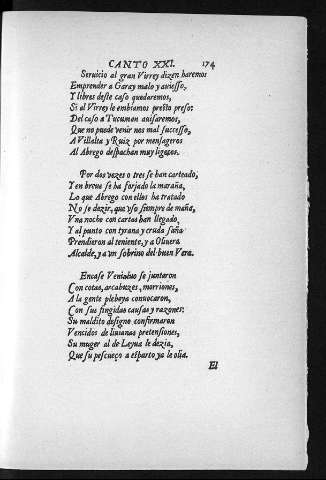 CANTO XXI. 174
Seruicio al gran Virrey dizen haremos
Emprender a Garay malo y auiesso,
Y libres deste caso quedaremos,
Si al Virrey le embiamos presto preso:
Del caso a Tucuman auisaremos,
Que no puede venir nos mal sucesso,
A Villalta y Ruiz por mensageros
Al Abrego despachan muy ligeros.
Por dos vezes o tres se han carteado,
Y en breue se ha forjado la maraña,
Lo que Abrego con ellos ha tratado
No se dezir, que vso siempre de maña,
Vna noche con cartas han llegado,
Y al punto con tyrana y cruda saña
Prendieron al teniente, y a Oliuera
Alcalde, y a vn sobrino del buen Vera.
En casa Venialuo se juntaron
Con cotas, arcabuzes, morriones,
A la gente plebeya conuocaron,
Con sus fingidas causas y razones:
Su maldito designo confirmaron
Vencidos de liuianas pretensiones,
Su muger al de Leyua le dezia,
Que su pescueço a esparto ya le olia.
El